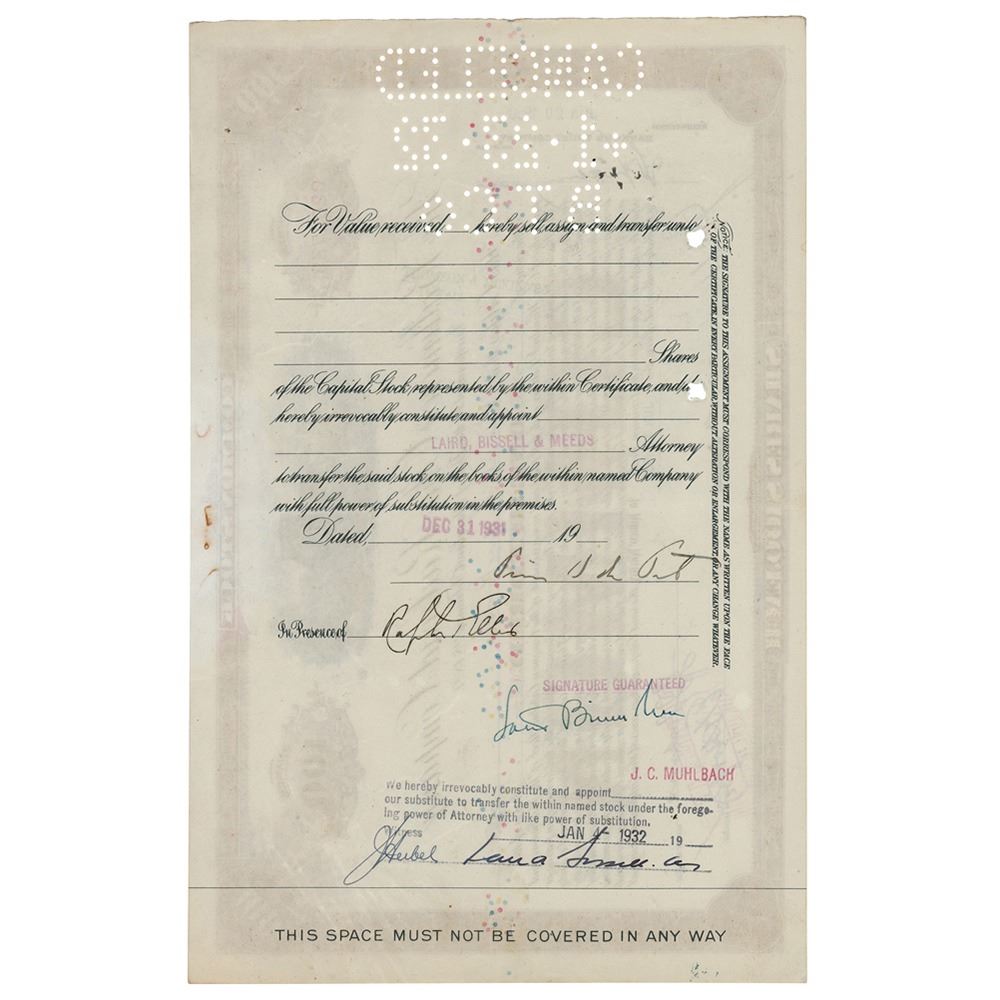 CANCELLED
For Value received hereby sell, assign and transfer unto
Shares
of the Capital Stock, represented by the within Certificate, and do
hereby irrevocably constitute and appoint
LAIRD, BISSELL & MEEDS Attorney
to transfer the said stock, on the books of the within named Company
with full power of substitution in the premises.
Dated, DEC 31 1931 19
In Presence of Ralph Ellis
SIGNATURE GUARANTEED
J. C. MUHLBACH
We hereby irrevocably constitute and appoint
our substitute to transfer the within named stock under the forego-
ing power of Attorney with like power of substitution.
Witness JAN 4- 1932 19
THIS SPACE MUST NOT BE COVERED IN ANY WAY
NOTICE: THE SIGNATURE TO THIS ASSIGNMENT MUST CORRESPOND WITH THE NAME AS WRITTEN UPON THE FACE
OF THE CERTIFICATE, IN EVERY PARTICULAR, WITHOUT ALTERATION OR ENLARGEMENT, OR ANY CHANGE WHATEVER.